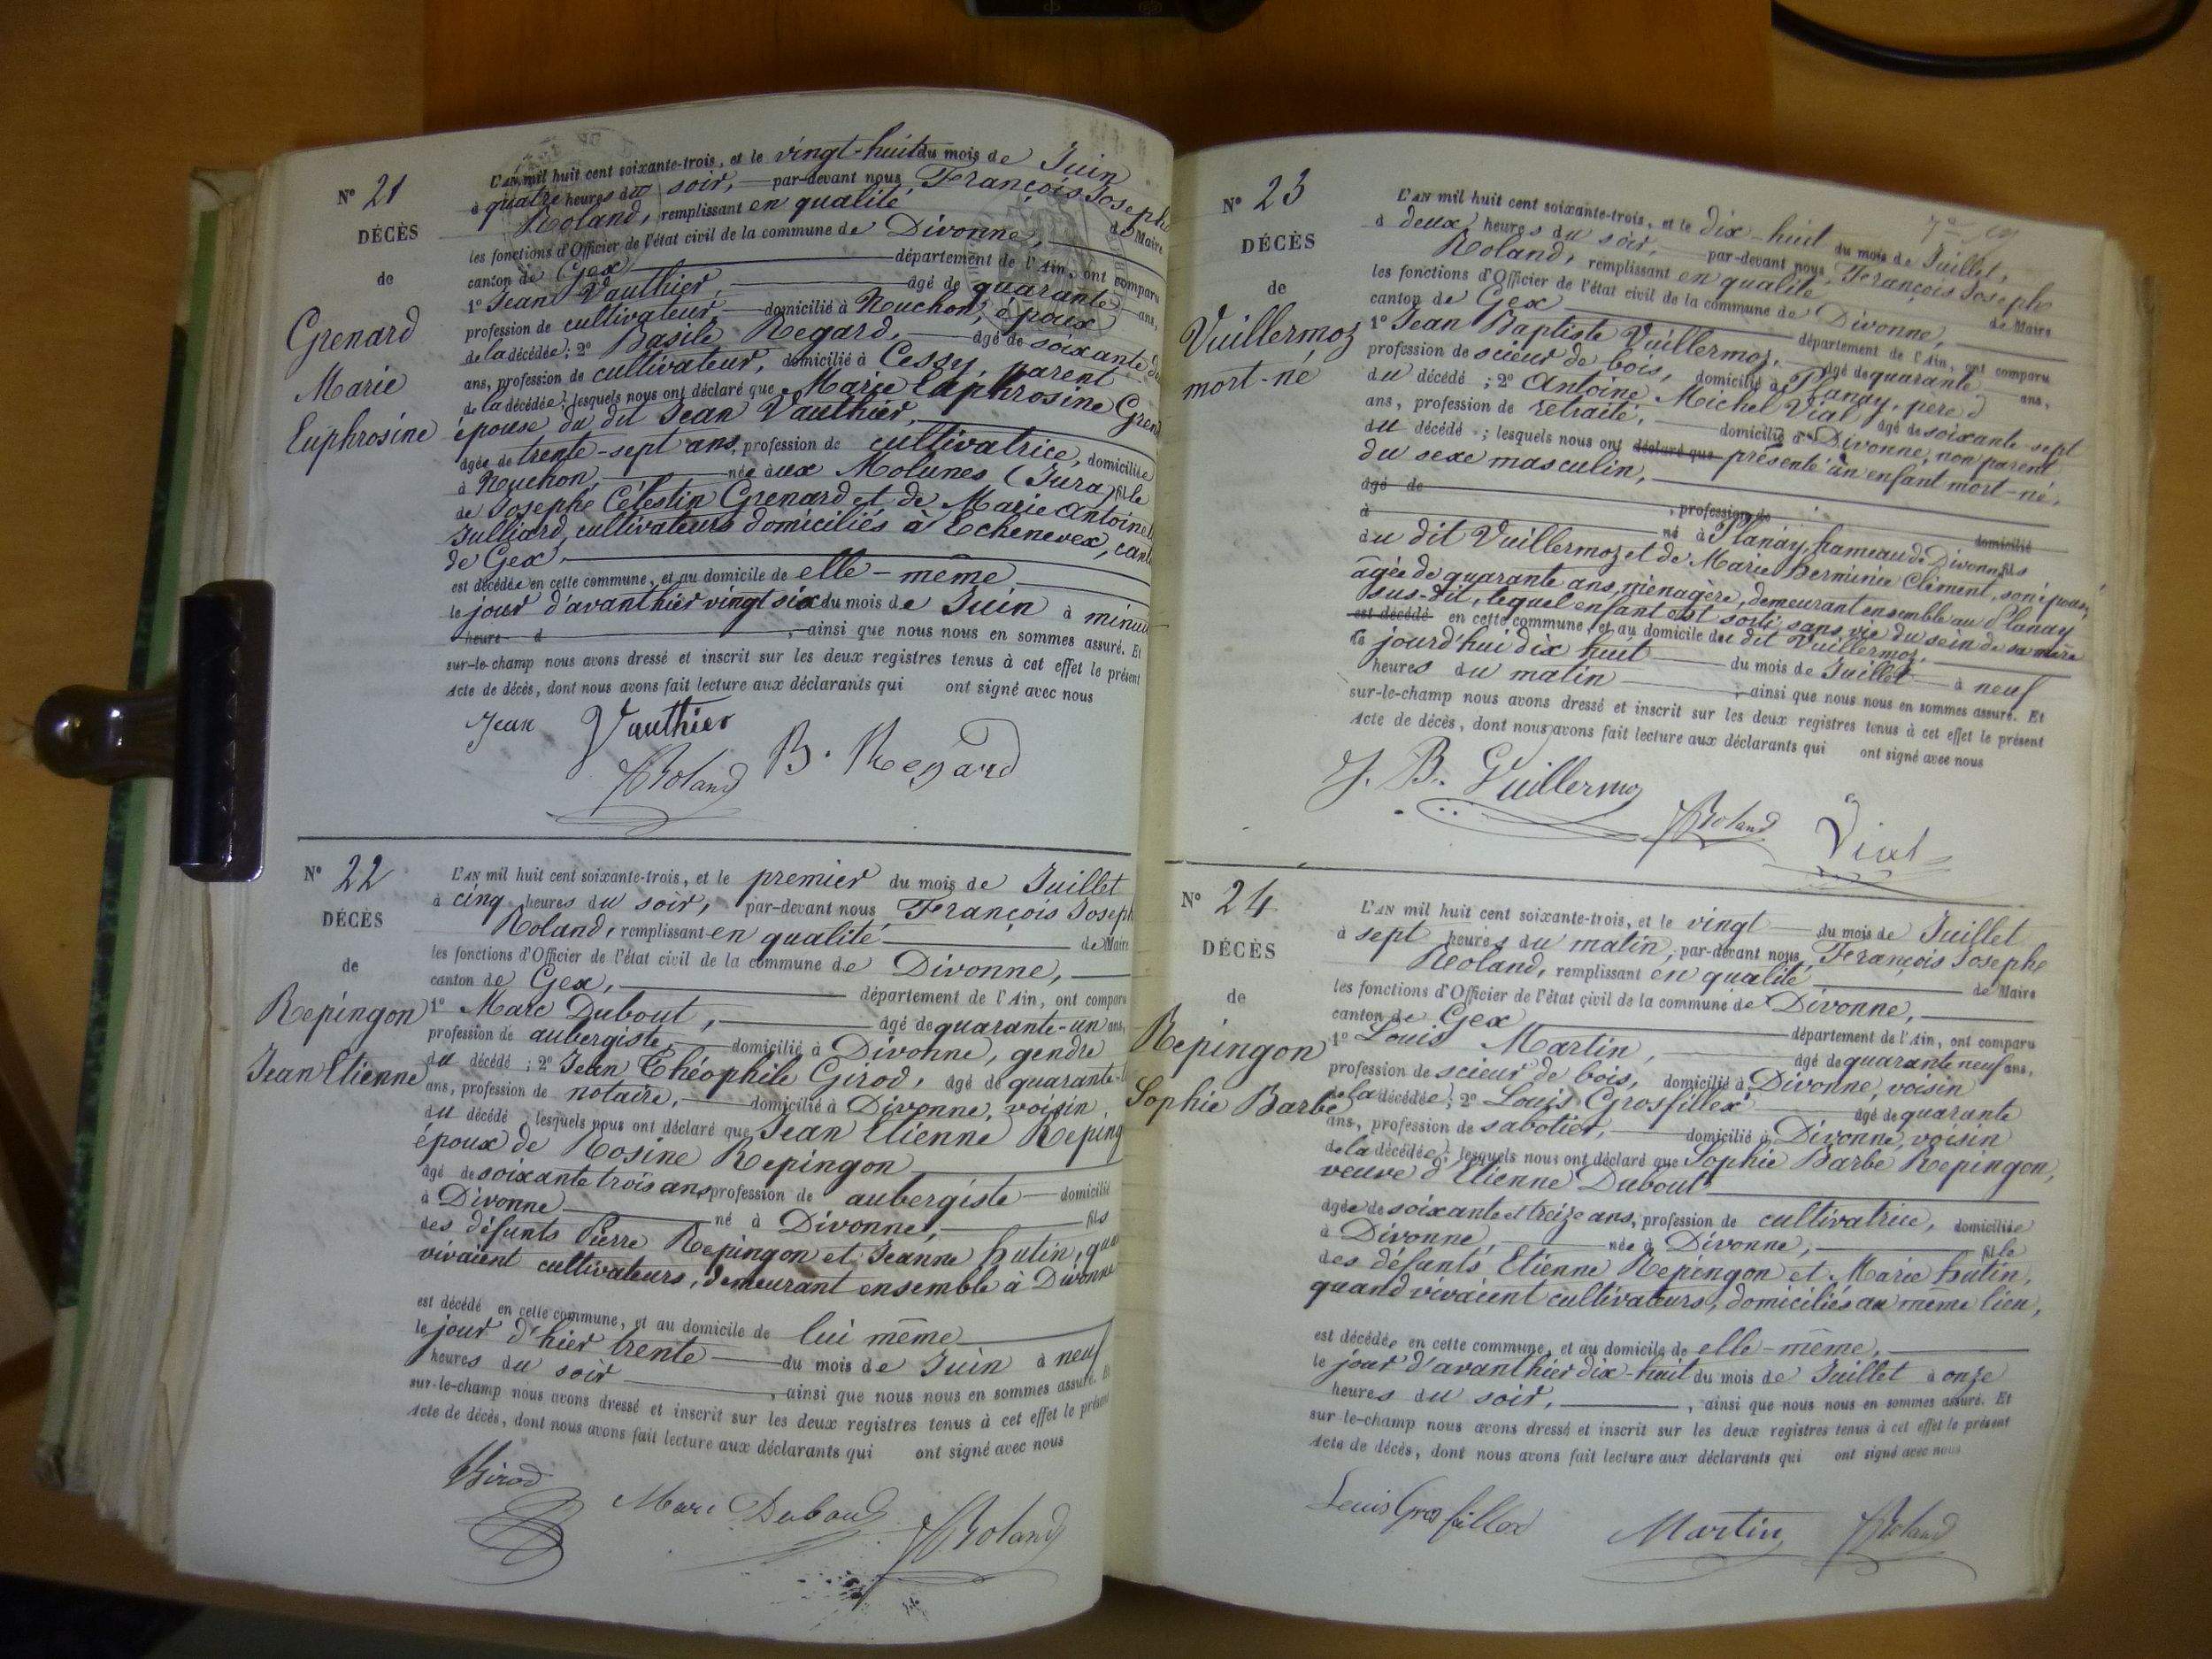 Nº 21
DÉCÈS
de
Grenard
Marie
Euphrosine
L'AN mil huit cent soixante-trois, et le vingt-huit du mois de Juin
à quatre heures du soir, par-devant nous François Joseph
Roland, remplissant en qualité de Maire
les fonctions d'Officier de l'état civil de la commune de Divonne,
canton de Gex département de l'Ain, ont comparu
1º Jean Vauthier, âgé de quarante ans,
profession de cultivateur, domicilié à Vuchon, époux
de la décédée; 2º Basile Regard, âgé de soixante
ans, profession de cultivateur, domicilié à Cessy, parent
de la décédée; lesquels nous ont déclaré que Marie Euphrosine Gren
épouse du dit Jean Vauthier,
âgée de trente-sept ans, profession de cultivatrice, domiciliée
à Vuchon, née aux Molunes (Jura) fille
de Josephe Célestin Grenard et de Marie Antoine
Julliard, cultivateurs domiciliés à Echenevex, cant
de Gex,
est décédée en cette commune, et au domicile de elle-même
le jour d'avanthier vingt six du mois de Juin à minui
heure d , ainsi que nous nous en sommes assuré. Et
sur-le-champ nous avons dressé et inscrit sur les deux registres tenus à cet effet le présent
Acte de décès, dont nous avons fait lecture aux déclarants qui ont signé avec nous
Jean Vauthier
Roland B. Regard
Nº 22
DÉCÈS
de
Repingon
Jean Etienne
L'AN mil huit cent soixante-trois, et le premier du mois de Juillet
à cinq heures du soir, par-devant nous François Joseph
Roland, remplissant en qualité de Maire
les fonctions d'Officier de l'état civil de la commune de Divonne,
canton de Gex, département de l'Ain, ont comparu
1º Marc Dubout, âgé de quarante-un ans,
profession de aubergiste, domicilié à Divonne, gendre
du décédé; 2º Jean Théophile Girod, âgé de quarante
ans, profession de notaire, domicilié à Divonne, voisin
du décédé; lesquels nous ont déclaré que Jean Etienne Reping
époux de Rosine Repingon
âgé de soixante trois ans profession de aubergiste domicilié
à Divonne né à Divonne, fils
des défunts Pierre Repingon et Jeanne hutin, qua
vivaient cultivateurs, demeurant ensemble à Divonne
est décédé en cette commune, et au domicile de lui même
le jour d'hier trente du mois de Juin à neuf
heures du soir , ainsi que nous nous en sommes assuré. Et
sur-le-champ nous avons dressé et inscrit sur les deux registres tenus à cet effet le présent
Acte de décès, dont nous avons fait lecture aux déclarants qui ont signé avec nous
Girod
Marc Dubout Roland
Nº 23
DÉCÈS
de
Vuillermoz
mort-né
L'AN mil huit cent soixante-trois, et le dix-huit du mois de Juillet,
à deux heures du soir, par-devant nous, François Josephe
Roland, remplissant en qualité de Maire
les fonctions d'Officier de l'état civil de la commune de Divonne,
canton de Gex département de l'Ain, ont comparu
1º Jean Baptiste Vuillermoz, âgé de quarante ans,
profession de scieur de bois, domicilié à Planay, père
du décédé; 2º Antoine Michel Vial âgé de soixante-sept
ans, profession de retraité, domicilié à Divonne, non parent
du décédé; lesquels nous ont déclaré que présenté un enfant mort-né,
du sexe masculin,
âgé de
à , profession de domicilié
né à Planay, hameau de Divonne fils
du dit Vuillermoz et de Marie Herminie Clément, son épouse,
âgée de quarante ans, ménagère, demeurant ensemble au Planay
sus-dit, lequel enfant est sorti sans vie du sein de sa mère
est décédé en cette commune, et au domicile du dit Vuillermoz,
le jourd'hui dix huit du mois de Juillet à neuf
heures du matin , ainsi que nous nous en sommes assuré. Et
sur-le-champ nous avons dressé et inscrit sur les deux registres tenus à cet effet le présent
Acte de décès, dont nous avons fait lecture aux déclarants qui ont signé avec nous
J. B. Vuillermoz
Roland Vial
Nº 24
DÉCÈS
de
Repingon
Sophie Barbe
L'AN mil huit cent soixante-trois, et le vingt du mois de Juillet
à sept heures du matin, par-devant nous, François Josephe
Roland, remplissant en qualité de Maire
les fonctions d'Officier de l'état civil de la commune de Divonne,
canton de Gex département de l'Ain, ont comparu
1º Louis Martin, âgé de quarante neuf ans,
profession de scieur de bois, domicilié à Divonne, voisin
de la décédée; 2º Louis Grosfillex âgé de quarante
ans, profession de sabotier, domicilié à Divonne, voisin
de la décédée; lesquels nous ont déclaré que Sophie Barbe Repingon,
veuve d'Etienne Dubout
âgée de soixante et treize ans, profession de cultivatrice, domiciliée
à Divonne, née à Divonne, fille
des défunts Etienne Repingon et Marie hutin,
quand vivaient cultivateurs, domiciliés au même lieu,
est décédée en cette commune, et au domicile de elle-même,
le jour d'avanthier dix-huit du mois de Juillet à onze
heures du soir, , ainsi que nous nous en sommes assuré. Et
sur-le-champ nous avons dressé et inscrit sur les deux registres tenus à cet effet le présent
Acte de décès, dont nous avons fait lecture aux déclarants qui ont signé avec nous
Louis Grosfillex
Martin Roland